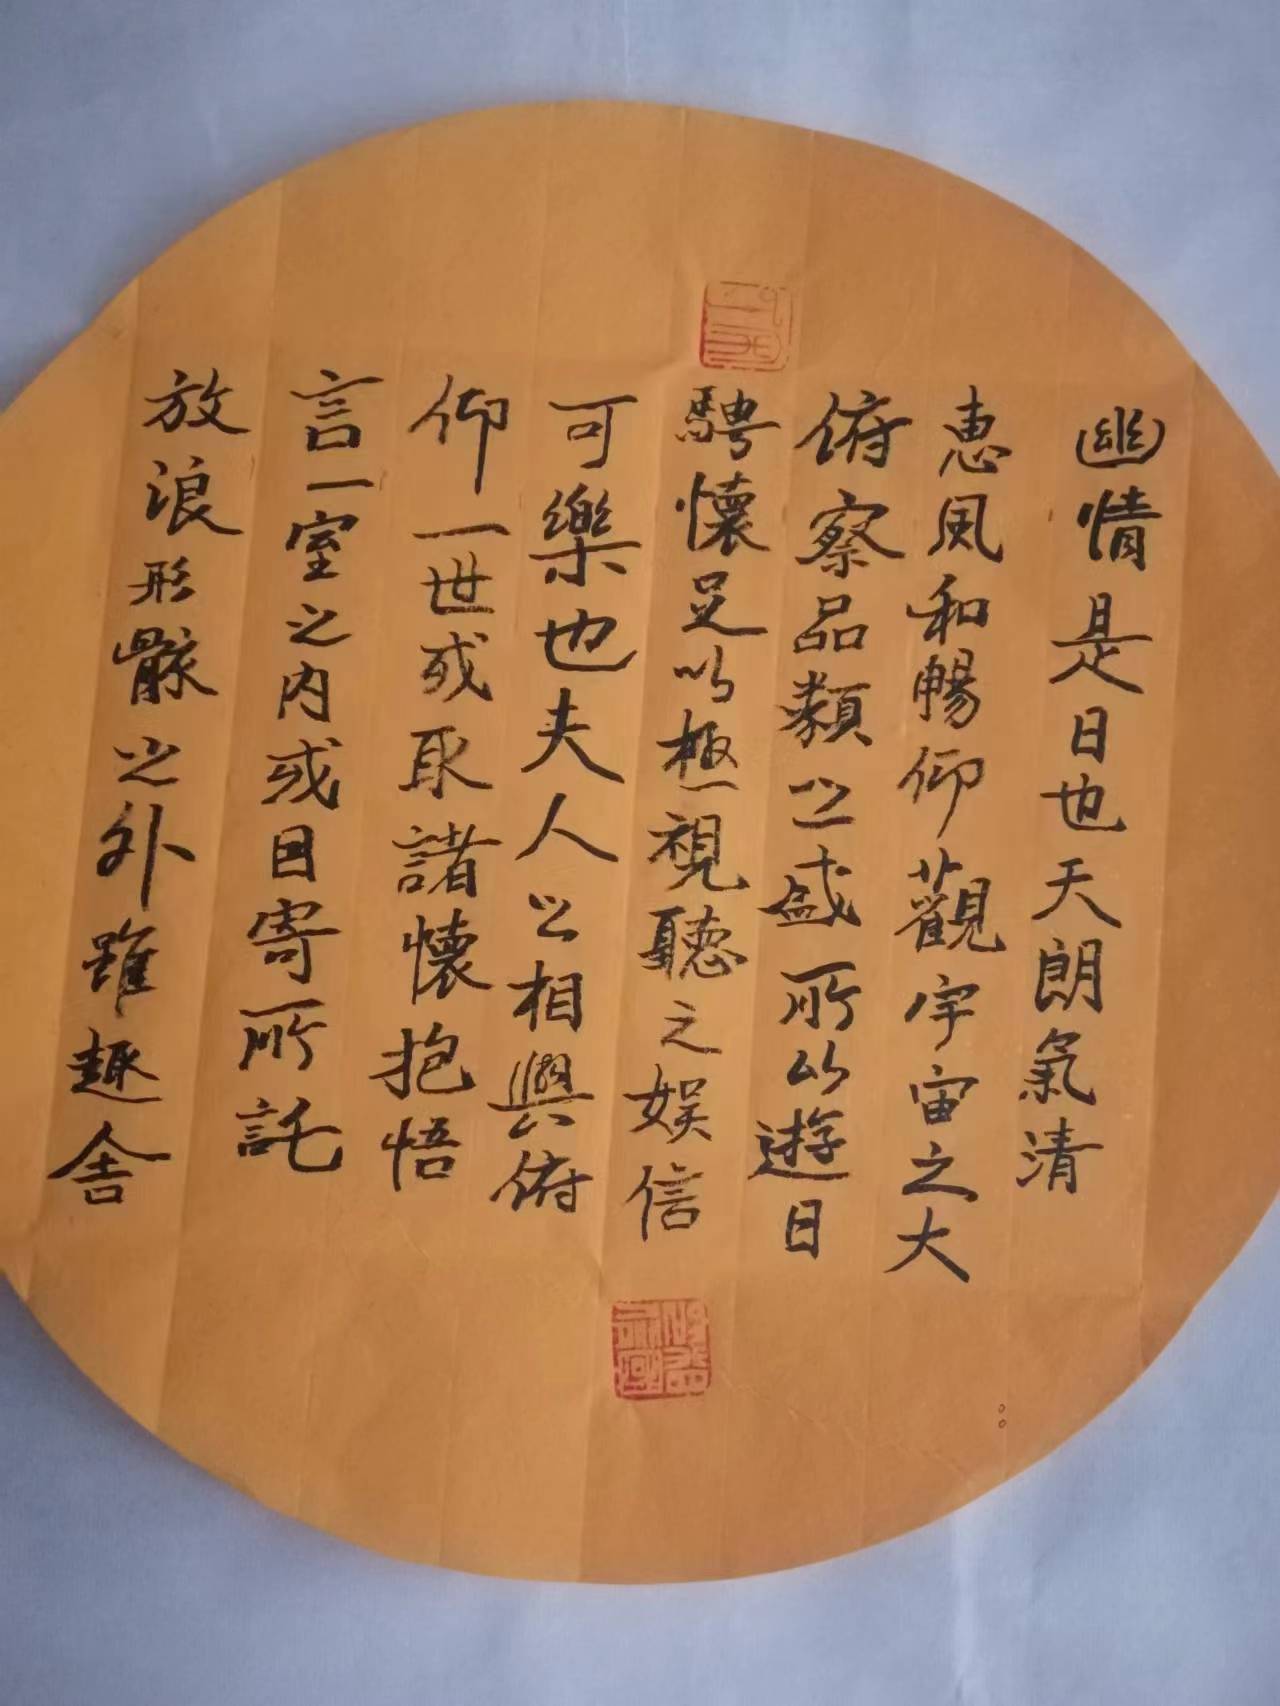 幽情是日也天朗氣清
惠風和暢仰觀宇宙之大
俯察品類之盛所以遊目
騁懷足以極視聽之娛信
可樂也夫人之相與俯
仰一世或取諸懷抱悟
言一室之內或因寄所託
放浪形骸之外雖趣舍